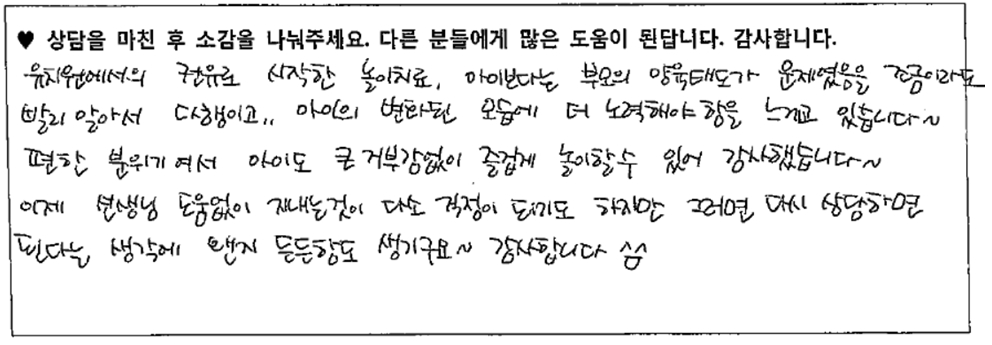 ♥ 상담을 마친 후 소감을 나눠주세요. 다른 분들에게 많은 도움이 된답니다. 감사합니다.
유치원에서의 권유로 시작한 놀이치료, 아이보다는 부모의 양육태도가 문제였음을 조금이라도
빨리 알아서 다행이고,, 아이의 변화된 모습에 더 노력해야 함을 느끼고 있습니다~
편한 분위기여서 아이도 큰 거부감없이 즐겁게 놀이할 수 있어 감사했습니다~
이제 선생님 도움없이 지내는것이 다소 걱정이 되기도 하지만 그러면 다시 상담하면
된다는 생각에 왠지 든든함도 생기구요~ 감사합니다 ^^